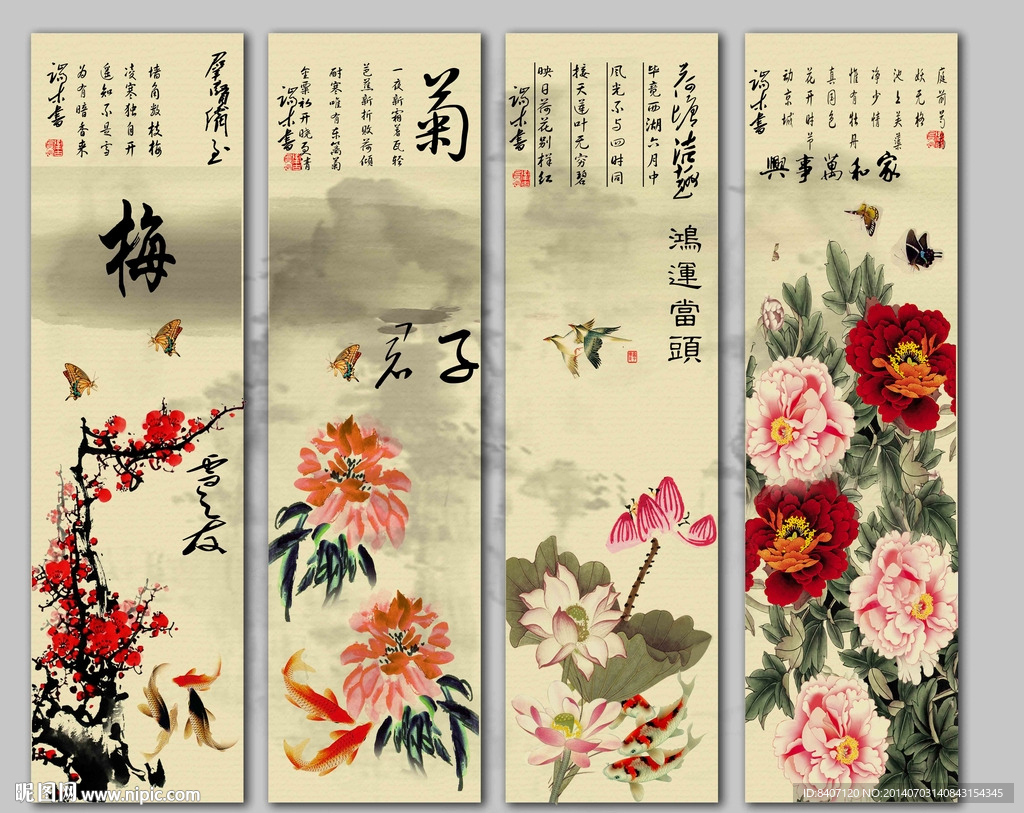 墙角数枝梅
凌寒独自开
遥知不是雪
为有暗香来
梅
雪之友
菊
一夜新霜著瓦轻
芭蕉新折败荷倾
耐寒唯有东篱菊
金粟初开晓更清
君
子
毕竟西湖六月中
风光不与四时同
接天莲叶无穷碧
映日荷花别样红
鴻運當頭
庭前芍
妖无格
池上芙蕖
净少情
惟有牡丹
真国色
花开时节
动京城
家和萬事興
昵图网 www.nipic.com
ID:8407120 NO:20140703140843154345